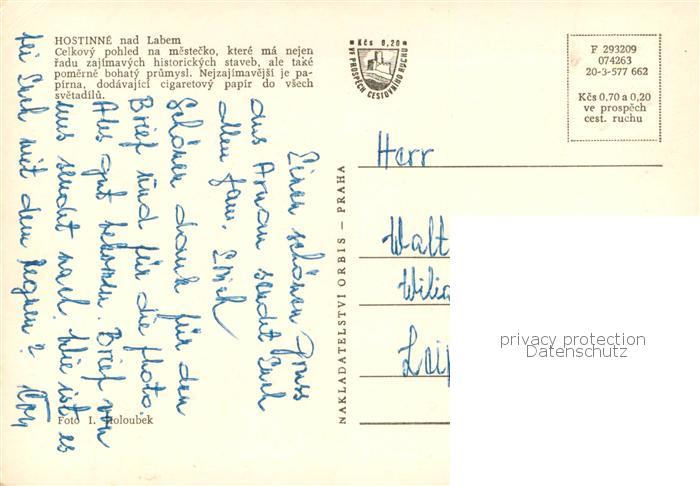 HOSTINNÉ nad Labem
Celkový pohled na městečko, které má nejen
řadu zajímavých historických staveb, ale také
poměrně bohatý průmysl. Nejzajímavější je pa-
pírna, dodávající cigaretový papír do všech
světadílů.
Kčs 0,20
VE PROSPĚCH CESTOVNÍHO RUCHU
F 293209
074263
20-3-577 662
Kčs 0,70 a 0,20
ve prospěch
cest. ruchu
Einen schönen Gruss
aus Arnau sendet Euch
allen Fam. Erich
Schönen dank für den
Brief und für die Photo.
Alles gut bekommen. Brief von
uns sendet nach. Wie ist es
bei Euch mit dem Regnen?
NAKLADATELSTVÍ ORBIS – PRAHA
Herr
Walt
Leip
privacy protection
Datenschutz
Foto I. Holoubek